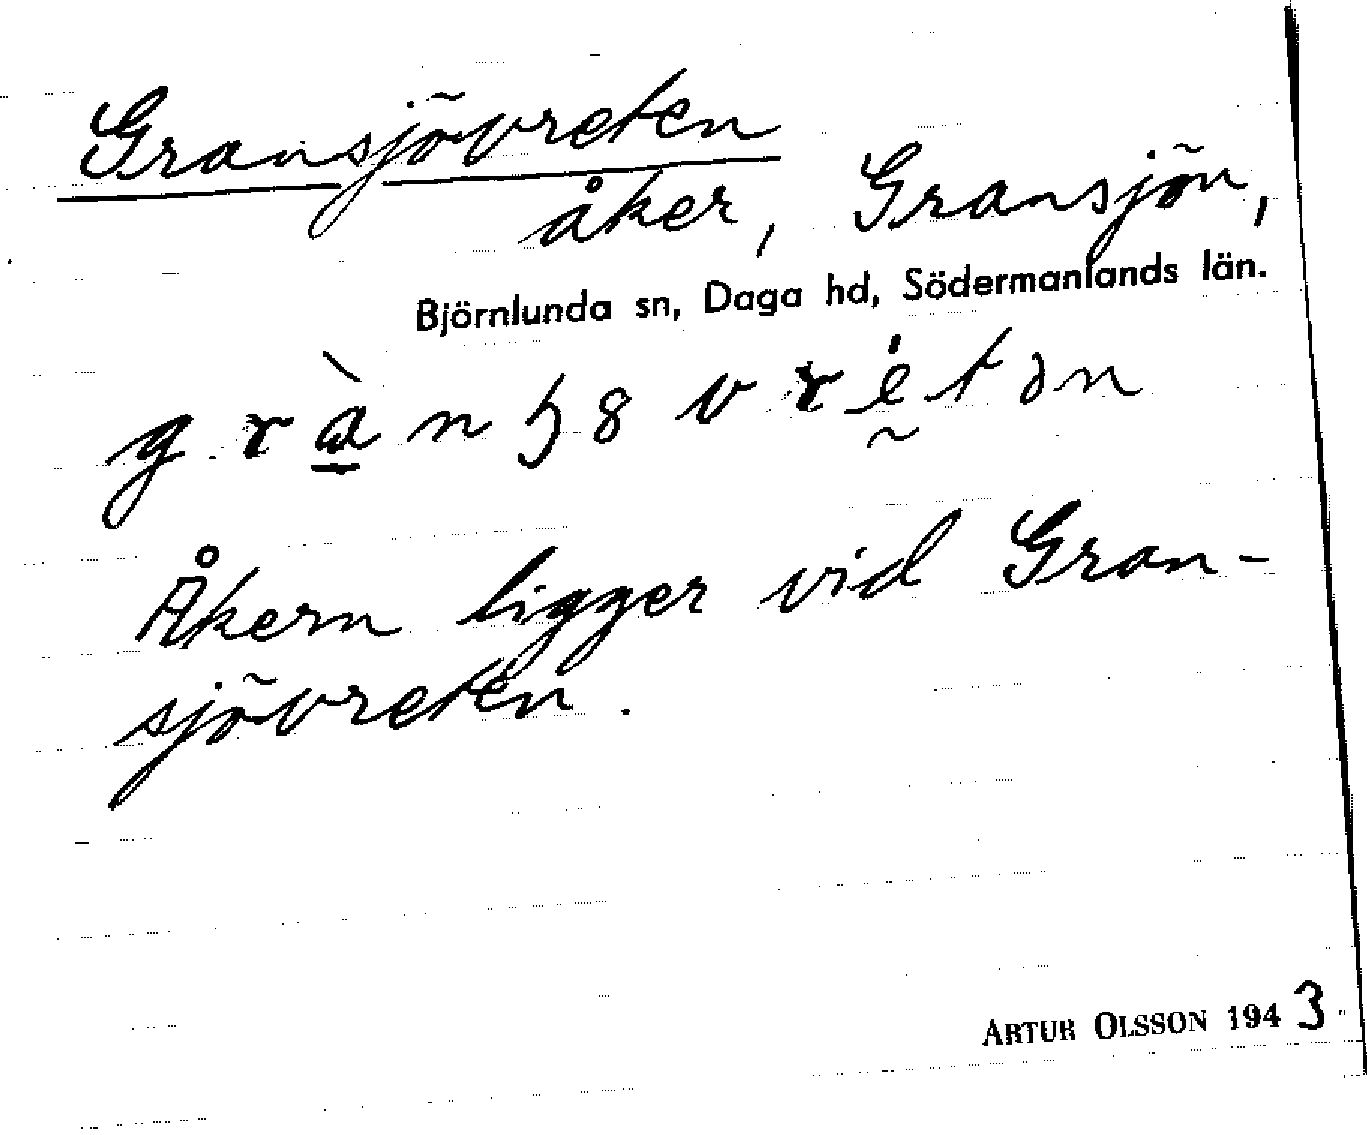 Gransjövreten
åker, Gransjön,
Björnlunda sn, Daga hd, Södermanlands län.
Åkern ligger vid Gran-
sjövreten.
ARTUR OLSSON 1943